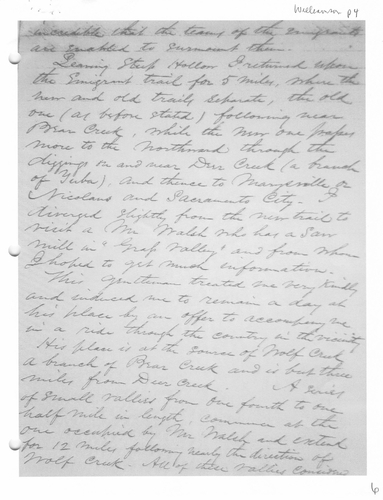 Williamson p4
incredible that the teams of the Emigrants
are enabled to surmount them.
Leaving Steep Hollow I returned upon
the Emigrant trail for 5 miles, where the
new and old trails separate, the old
one (as before stated) following near
Bear Creek, while the new one passes
more to the Northward through the
diggings on and near Deer Creek (a branch
of Yuba), and thence to Marysville or
Nicolaus and Sacramento City. I
diverged slightly from the new trail to
visit a Mr Walsh who has a Saw
mill in "Grass Valley" and from whom
I hoped to get much information.
This gentleman treated me very kindly
and induced me to remain a day at
his place by an offer to accompany me
in a ride through the country in the vicinity
His place is at the source of Wolf Creek
a branch of Bear Creek and is but three
miles from Deer Creek. A series
of small vallies from one fourth to one
half mile in length, commence at the
one occupied by Mr Walsh and extend
for 12 miles following nearly the direction of
Wolf Creek. All of these vallies
6